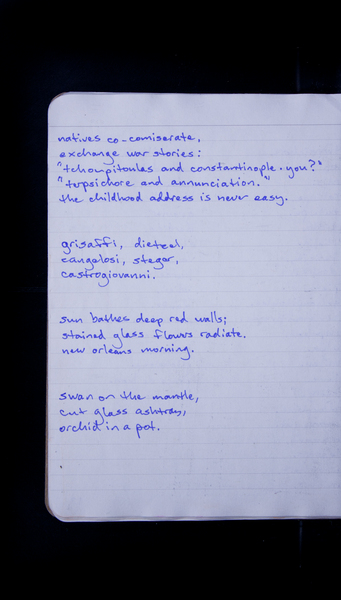 natives co-comiserate,
exchange war stories:
"tchoupitoulas and constantinople. you?"
"terpsichore and annunciation."
the childhood address is never easy.
grisaffi, dietzel,
cangelosi, steger,
castrogiovanni.
sun bathes deep red walls;
stained glass flowers radiate.
new orleans morning.
swan on the mantle,
cut glass ashtray,
orchid in a pot.